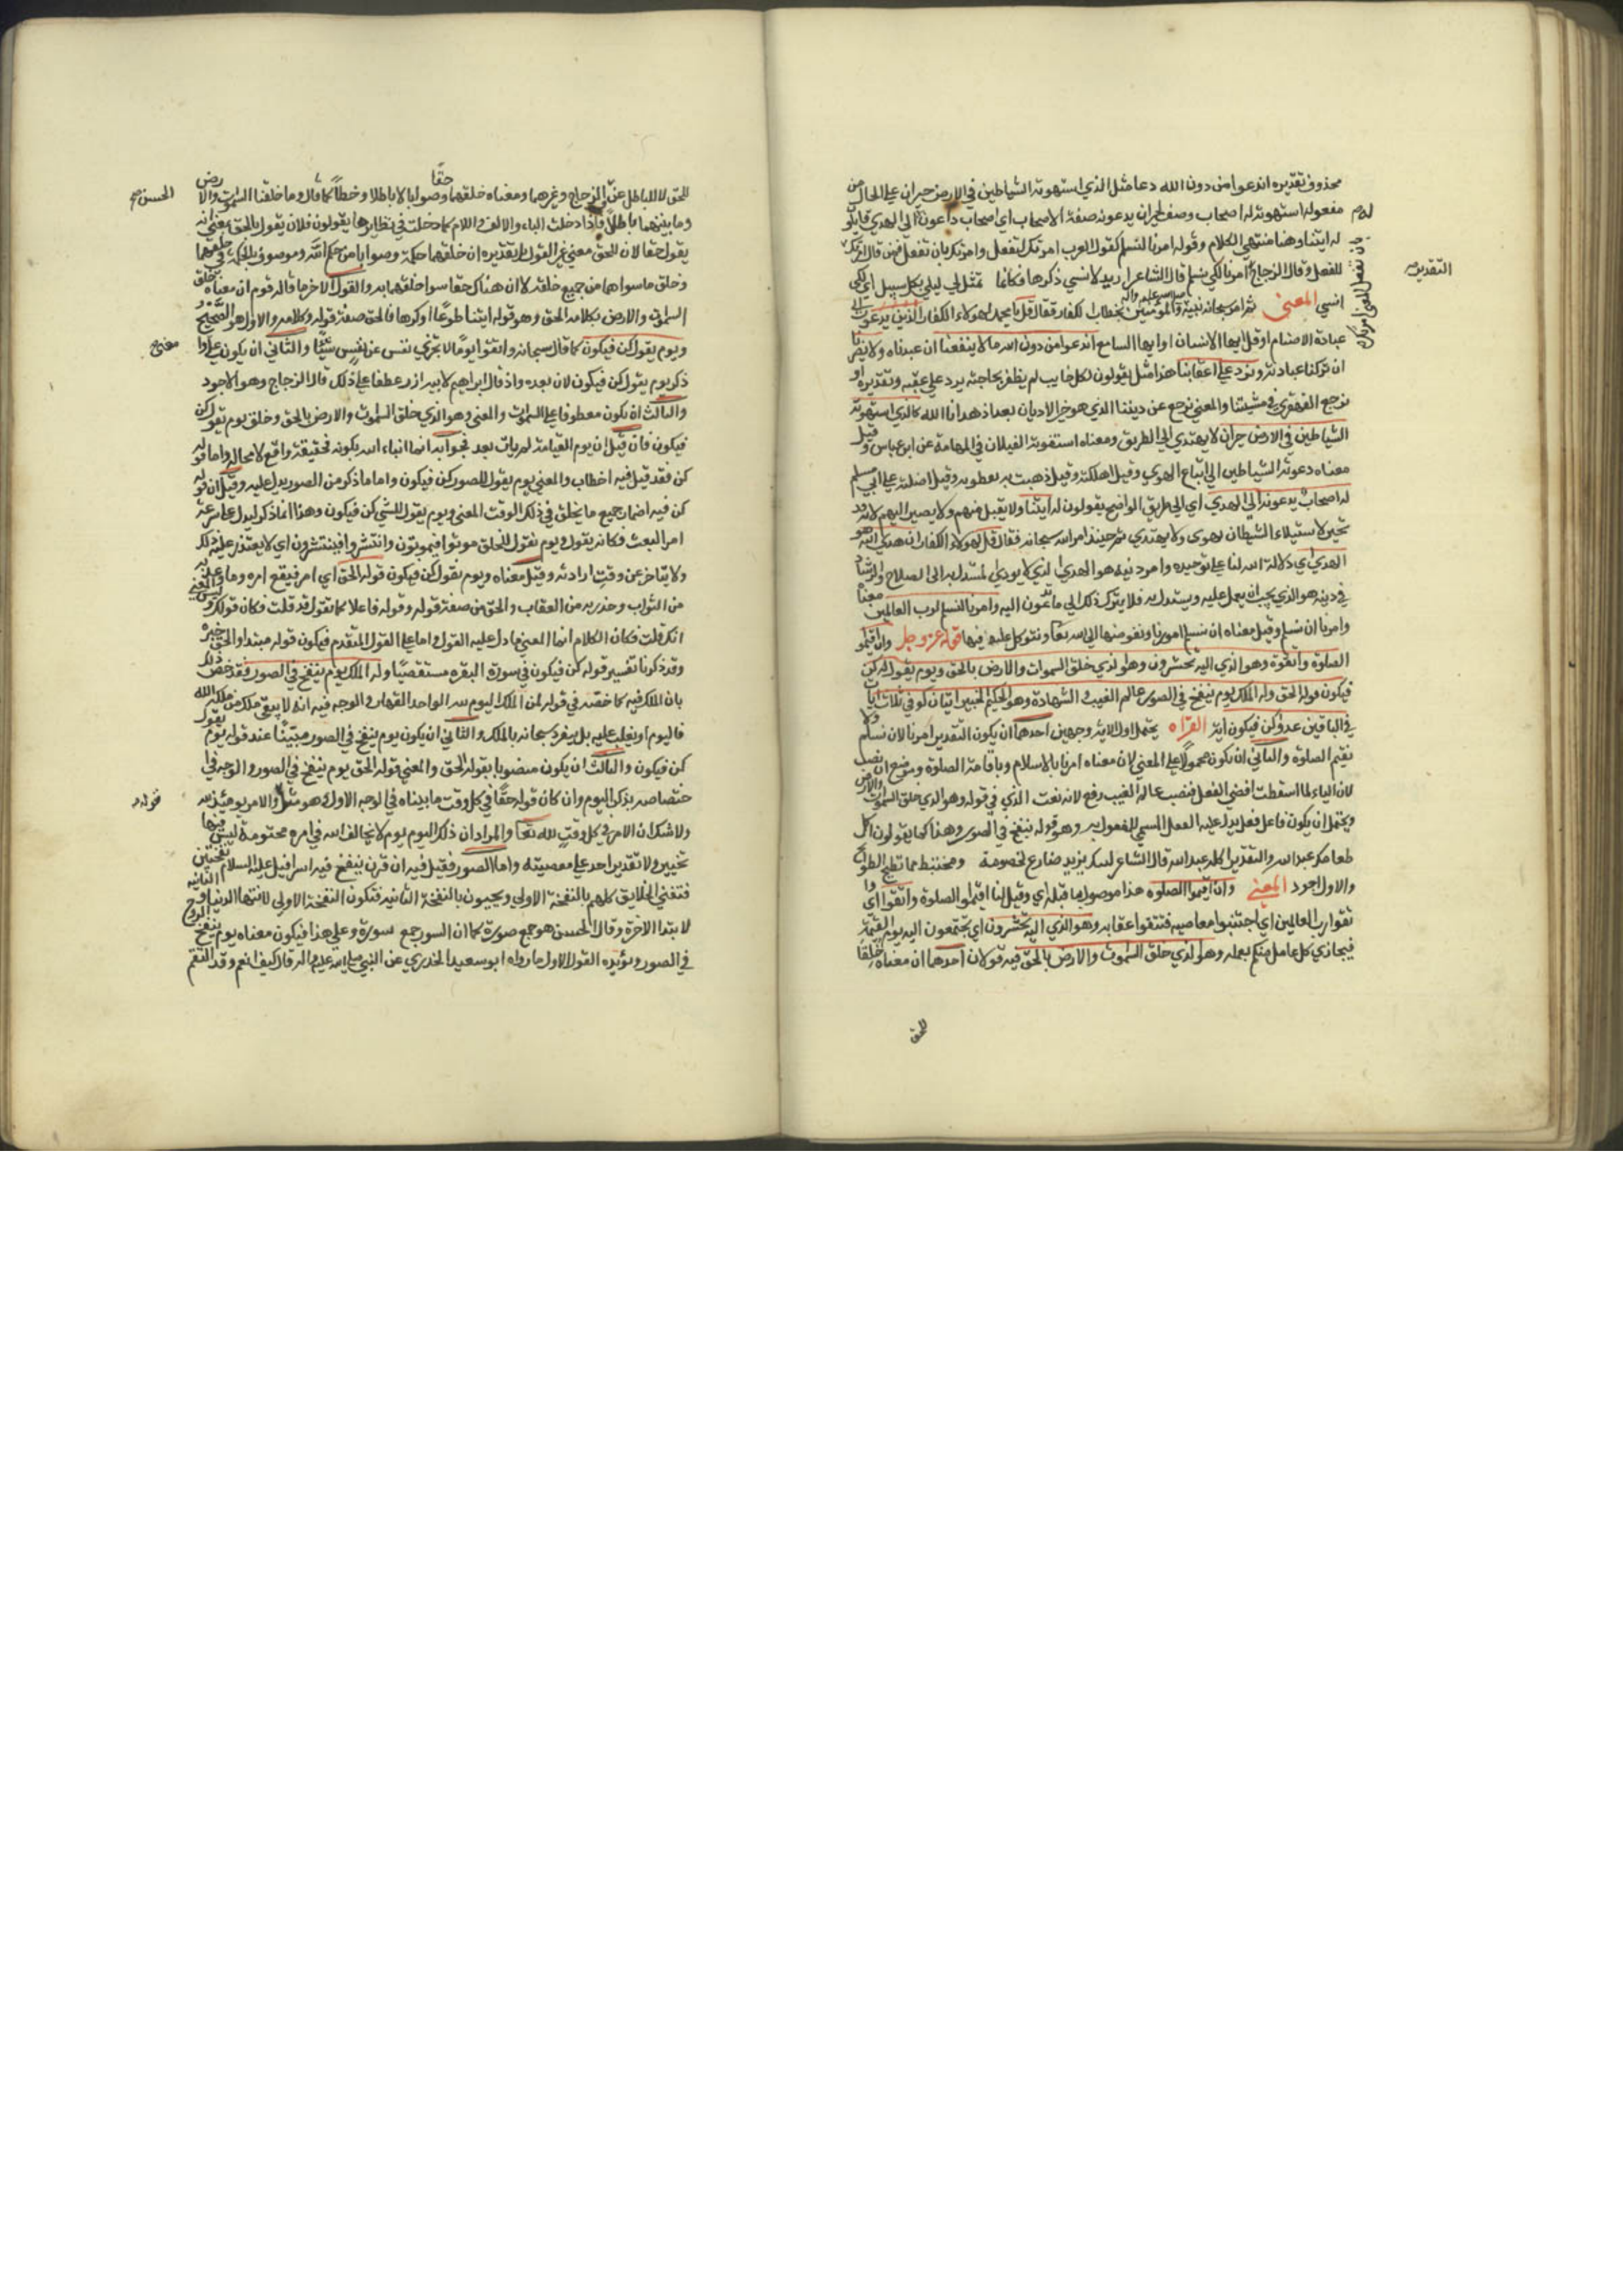 محذوف تقديره اندعوا من دون الله دعا مثل الذي استهوته الشياطين في الارض حيران على الحال من
مفعوله استهوته له اصحاب وصف لحيران يدعونه صفة لاصحاب اي اصحاب داعون الى الهدى قايلون
له ايتنا وهنا منتهى الكلام وقوله امرنا لنسلم كقول العرب امرتك لتفعل وامرتك بان تفعل فمن قال امرتك
للفعل وقال الزجاج امرنا لكي نسلم قال الشاعر اريد لانسى ذكرها فكانما تمثل لي ليلى بكل سبيل اي لكي
انسى المعنى ثم امر سبحانه نبيه والمؤمنين بخطاب الكفار فقال قل يا محمد لهولاء الكفار الذين يدعون الى
عبادة الاصنام او قل ايها الانسان او ايها السامع اندعوا من دون الله ما لا ينفعنا ان عبدناه ولا يضرنا
ان تركنا عبادته ونرد على اعقابنا هذا مثل يقولون لكل خايب لم يظفر بحاجته يرد على عقبه وتقديره او
نرجع القهقرى في مشيتنا والمعنى نرجع عن ديننا الذي هو خير الاديان بعد اذ هدانا الله كالذي استهوته
الشياطين في الارض حيران لا يهتدي الى الطريق ومعناه استغوته الغيلان في المهامه عن ابن عباس وقيل
معناه دعوته الشياطين الى اتباع الهوى وقيل اهلكته وقيل ذهبت به نفطويه وقيل اضلته عن ابي مسلم
له اصحاب يدعونه الى الهدى اي الى طريق الواضح يقولون له ايتنا ولا يقبل منهم ولا يصير اليهم لانه قد
تحير لاستيلاء الشيطان يهوى ولا يهتدي ثم حينئذ امر الله سبحانه فقال قل لهولاء الكفار ان هدى الله هو
الهدى اي دلالة الله لنا على توحيده وامر دينه هو الهدى الذي لا يودي المستدل به الى الصلاح والرشاد
في دينه هو الذي يجب ان يعمل عليه ويستدل به فلا يترك ذلك الى ما تدعون اليه وامرنا لنسلم لرب العالمين معناه
وامرنا ان نسلم وقيل معناه ان نسلم امورنا ونفوضها الى الله تعا ونتوكل عليه فيها قوله عز وجل وان اقيموا
الصلوة واتقوه وهو الذي اليه تحشرون وهو الذي خلق السموات والارض بالحق ويوم يقول كن
فيكون قوله الحق وله الملك يوم ينفخ في الصور عالم الغيب والشهادة وهو الحكيم الخبير ايتان كوفي ثلاث ايات
في الباقين عدوا كن فيكون اية القراه يحتمل اول الاية وجهين احدهما ان يكون التقدير امرنا لان نسلم ولا
نقيم الصلوة والثاني ان يكون محمولا على المعنى لان معناه امرنا بالاسلام وباقامة الصلوة وموضع ان نصب
لان الباء لما اسقطت افضى الفعل فنصب عالم الغيب رفع لانه نعت الذي في قوله وهو الذي خلق السموات والارض
ويحتمل ان يكون فاعل فعل يدل عليه الفعل المسمى للمفعول به وهو قوله ينفخ في الصور وهذا كما يقولون اكل
طعامك عبد الله والتقدير اكله عبد الله قال الشاعر ليبك يزيد ضارع لخصومة ومختبط مما تطيح الطوائح
والاول اجود المعنى وان اقيموا الصلوه هذا موصول بما قبله اي وقيل لنا اقيموا الصلوة واتقوا اي وا
تقوا رب العالمين اي اجتنبوا معاصيه فتتقوا عقابه وهو الذي اليه تحشرون اي يجتمعون اليه يوم القيمة
فيجازي كل عامل منكم بعمله وهو الذي خلق السموات والارض بالحق فيه قولان احدهما ان معناه خلقا
للحق
التقدير صح
للحق لا للباطل عن الحسن والزجاج وغيرهما ومعناه خلقهما حقا وصوابا لا باطلا وخطأ كما قال وما خلقنا السموات والارض
وما بينهما باطلا فادخلت الباء والالف واللام كما دخلت في نظايرها يقولون فلان يقول بالحق بمعنى انه
يقول حقا لان الحق معنى غير القول بل تقديره ان خلقهما حكمة وصوابا من حكم الله وموصوف بالحكمة في خلقهما
وخلق ما سواهما من جميع خلقه لا ان هناك حقا سوا خلقهما به والقول الاخر ما قاله قوم ان معناه خلق
السموات والارض بكلامه الحق وهو قوله ايتنا طوعا او كرها فالحق صفة قوله وكلامه والاول هو الصحيح
ويوم يقول كن فيكون كما قال سبحانه واتقوا يوما لا تجزي نفس عن نفس شيئا والثاني ان يكون على وا
ذكر يوم يقول كن فيكون لان بعده واذ قال ابراهيم لابيه ازر عطفا على ذلك قاله الزجاج وهو الاجود
والثالث ان يكون معطوفا على السموات والمعنى وهو الذي خلق السموات والارض بالحق وخلق يوم يقول كن
فيكون فان قيل ان يوم القيامة لم يات بعد فجوابه انما انباء الله بكونه فحقيقته واقع لا محالة واما قوله
كن فقد قيل فيه اخطاب والمعنى يوم يقول للصور كن فيكون واما ما ذكر من الصور يدل عليه وقيل ان قوله
كن فيه اضمار جميع ما يخلق في ذلك الوقت المعنى ويوم يقول للشي كن فيكون وهذا انما ذكر ليدل على سرعة
امر البعث فكانه يقول ويوم نقول للخلق موتوا فيموتون وانتشروا فينتشرون اي لا يتعذر عليه ذلك
ولا يتاخر عن وقت ارادته وقيل معناه ويوم نقول كن فيكون قوله الحق اي امر فيقع امره وما وعد به
من الثواب وحذر به من العقاب والحق من صفة قوله وقوله فاعلا كما تقول قد قلت فكان قولك وليس المعنى
انك قلت فكان الكلام انما المعنى ما دل عليه القول واما على القول المتقدم فيكون قوله مبتدا والحق خبره
وقد ذكرنا تفسير قوله كن فيكون في سورة البقره مستقصيا وله الملك يوم ينفخ في الصور فقد خص ذلك
بان الملك فيه كما خصه في قوله لمن الملك اليوم لله الواحد القهار والوجه فيه انه لا يبقى ملك من ملكه الله
فاليوم او يغلب عليه بل ينفرد سبحانه بالملك والثاني ان يكون يوم ينفخ في الصور مبينا عند قوله يوم يقول
كن فيكون والثالث ان يكون منصوبا بقوله الحق والمعنى قوله الحق يوم ينفخ في الصور والوجه في ا
ختصاصه بذكر اليوم وان كان قوله حقا في كل وقت ما بيناه في الوجه الاول وهو مثل قوله والامر يومئذ لله
ولا شك ان الامر في كل وقت لله تعا والمراد ان ذلك اليوم يوم لا يخالف الله في امره محتومة ليس فيها
تخيير ولا تقدير احد على معصيته واما الصور فقيل فيه ان قرن ينفخ فيه اسرافيل عليه السلام نفختين
فتفنى الخلايق كلهم بالنفخة الاولى ويحيون بالنفخة الثانيه فتكون النفخة الاولى لانتها الدنيا والثانيه
لابتدا الاخرة وقال الحسن هو جمع صورة كما ان السور جمع سورة وعلى هذا فيكون معناه يوم ينفخ الروح
في الصور ويؤيده القول الاول ما رواه ابو سعيد الخدري عن النبي صلى الله عليه واله قال كيف انعم وقد التقم
الحسن صح
معنى
قوله